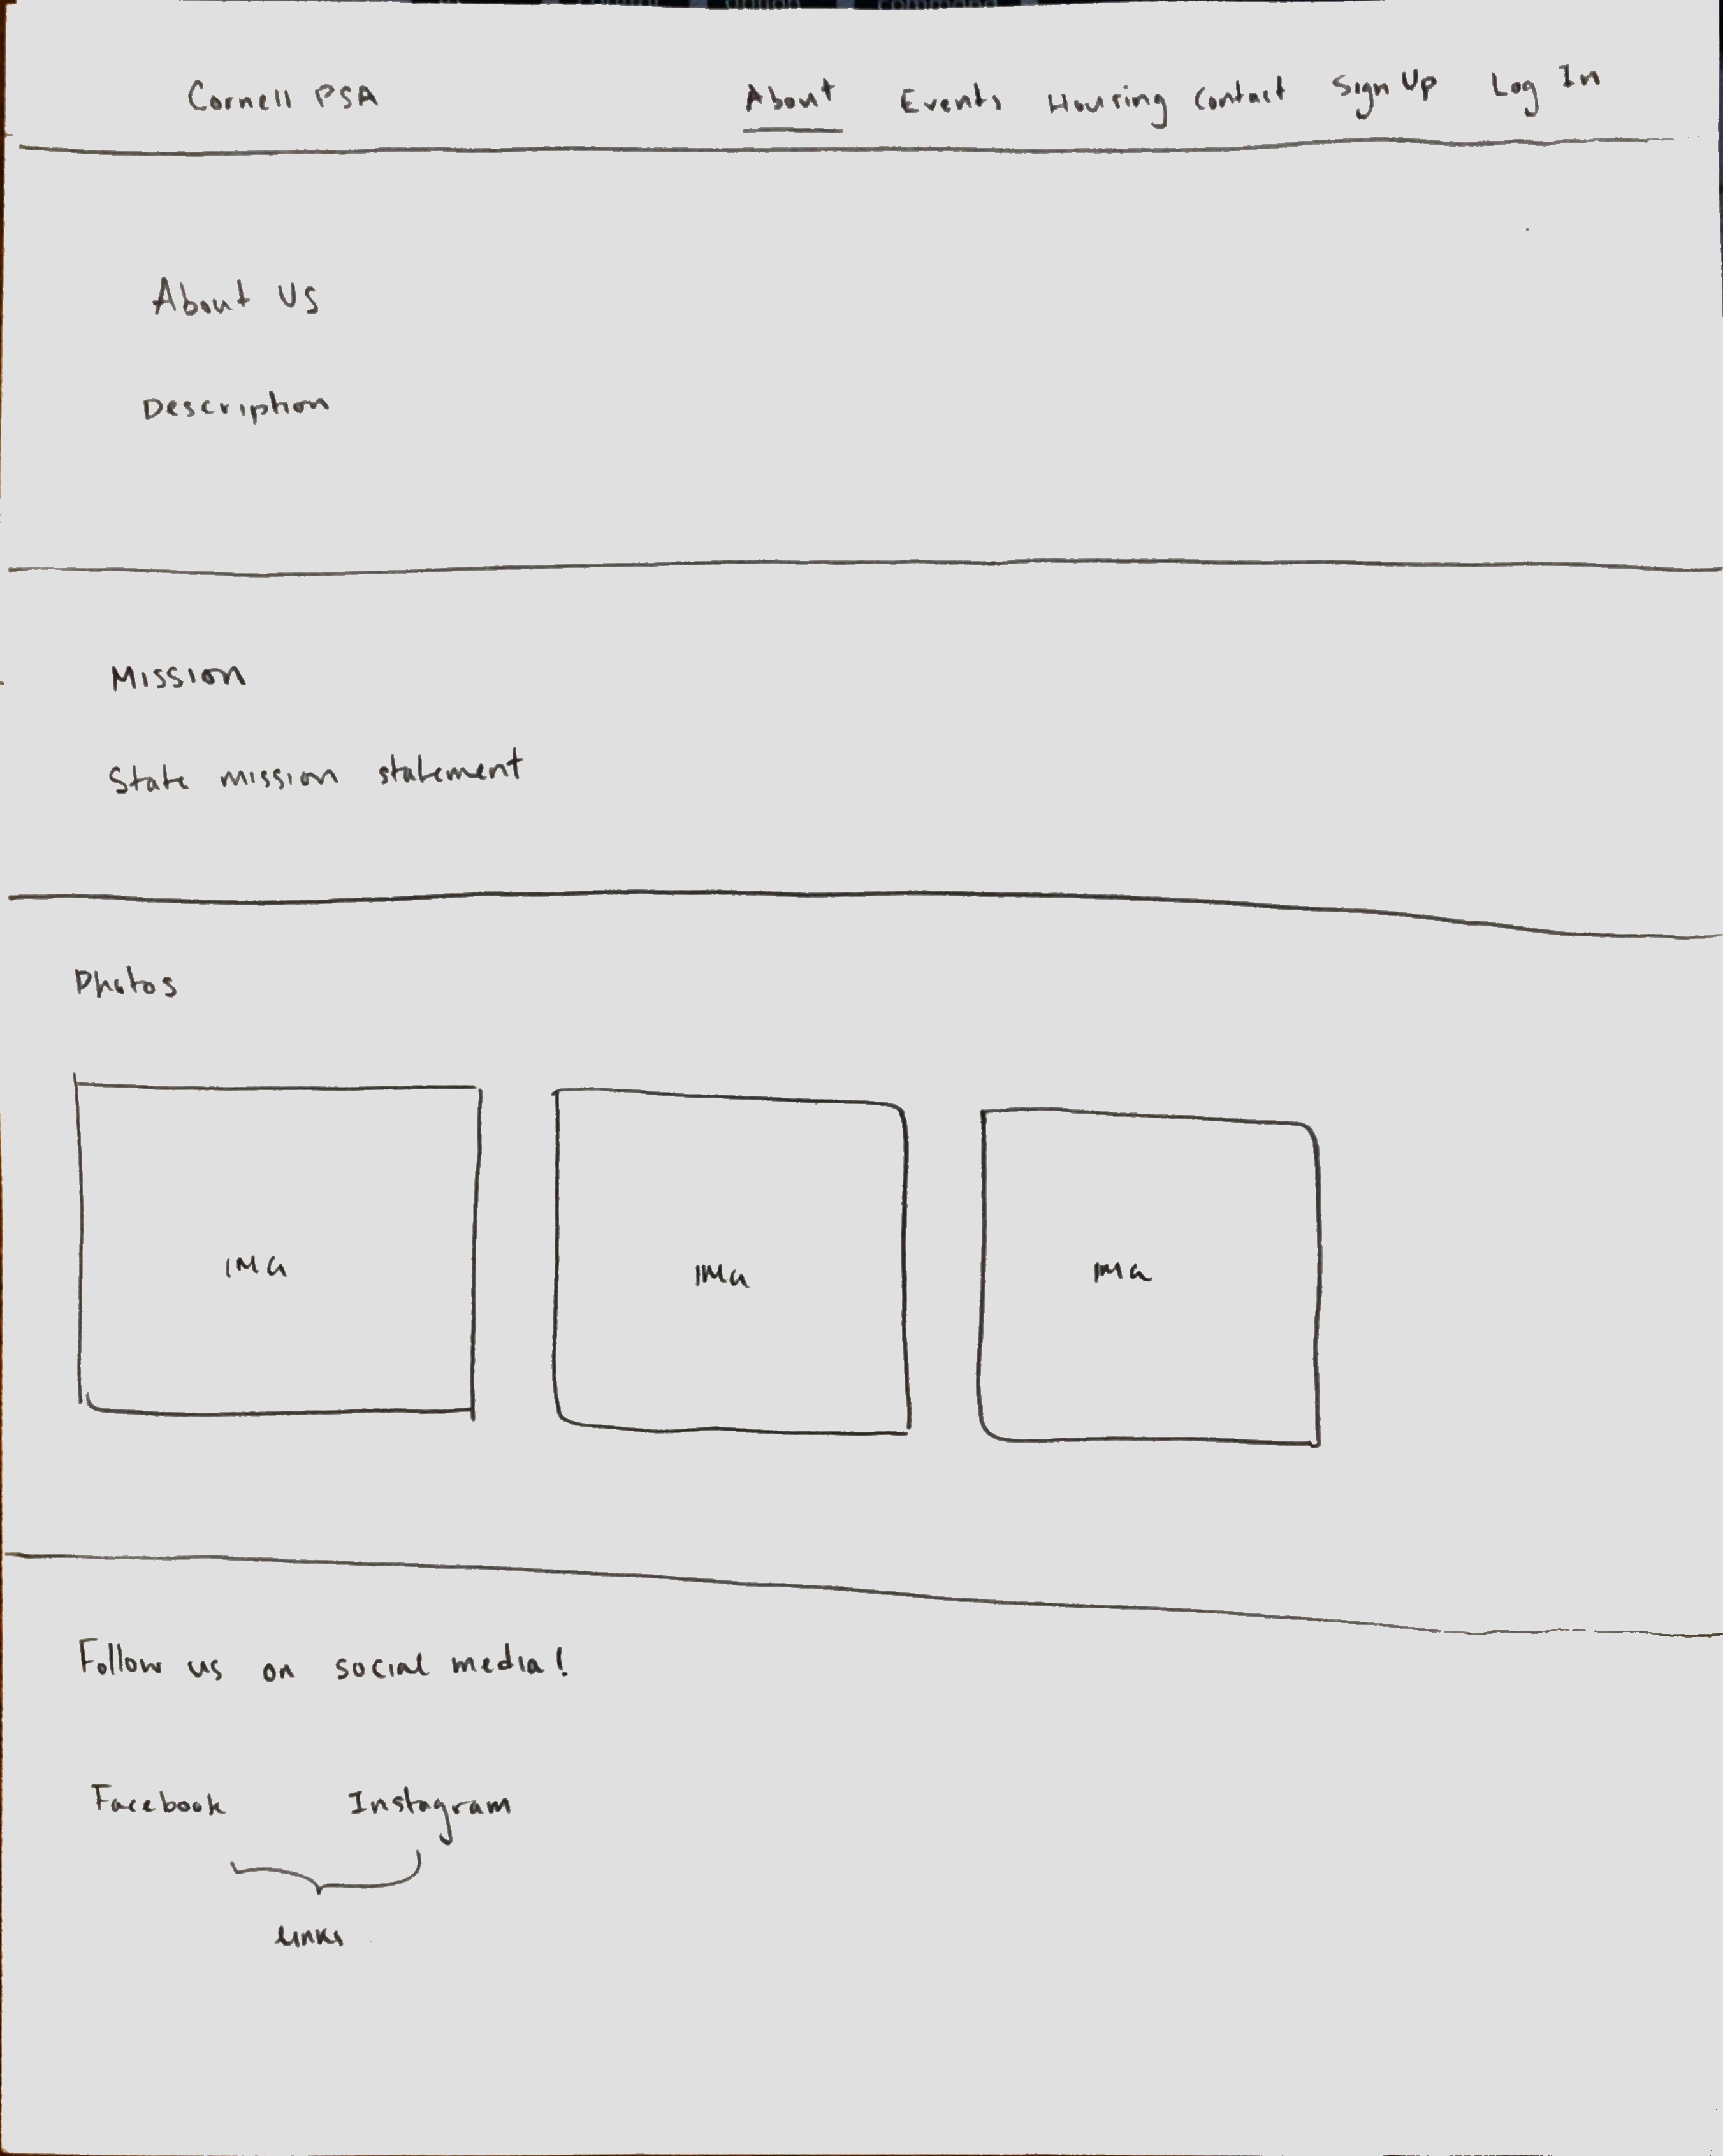 Cornell PSA About Events Housing Contact Sign Up Log In
About Us
Description
Mission
State mission statement
Photos
IMG IMG IMG
Follow us on social media!
Facebook Instagram
links